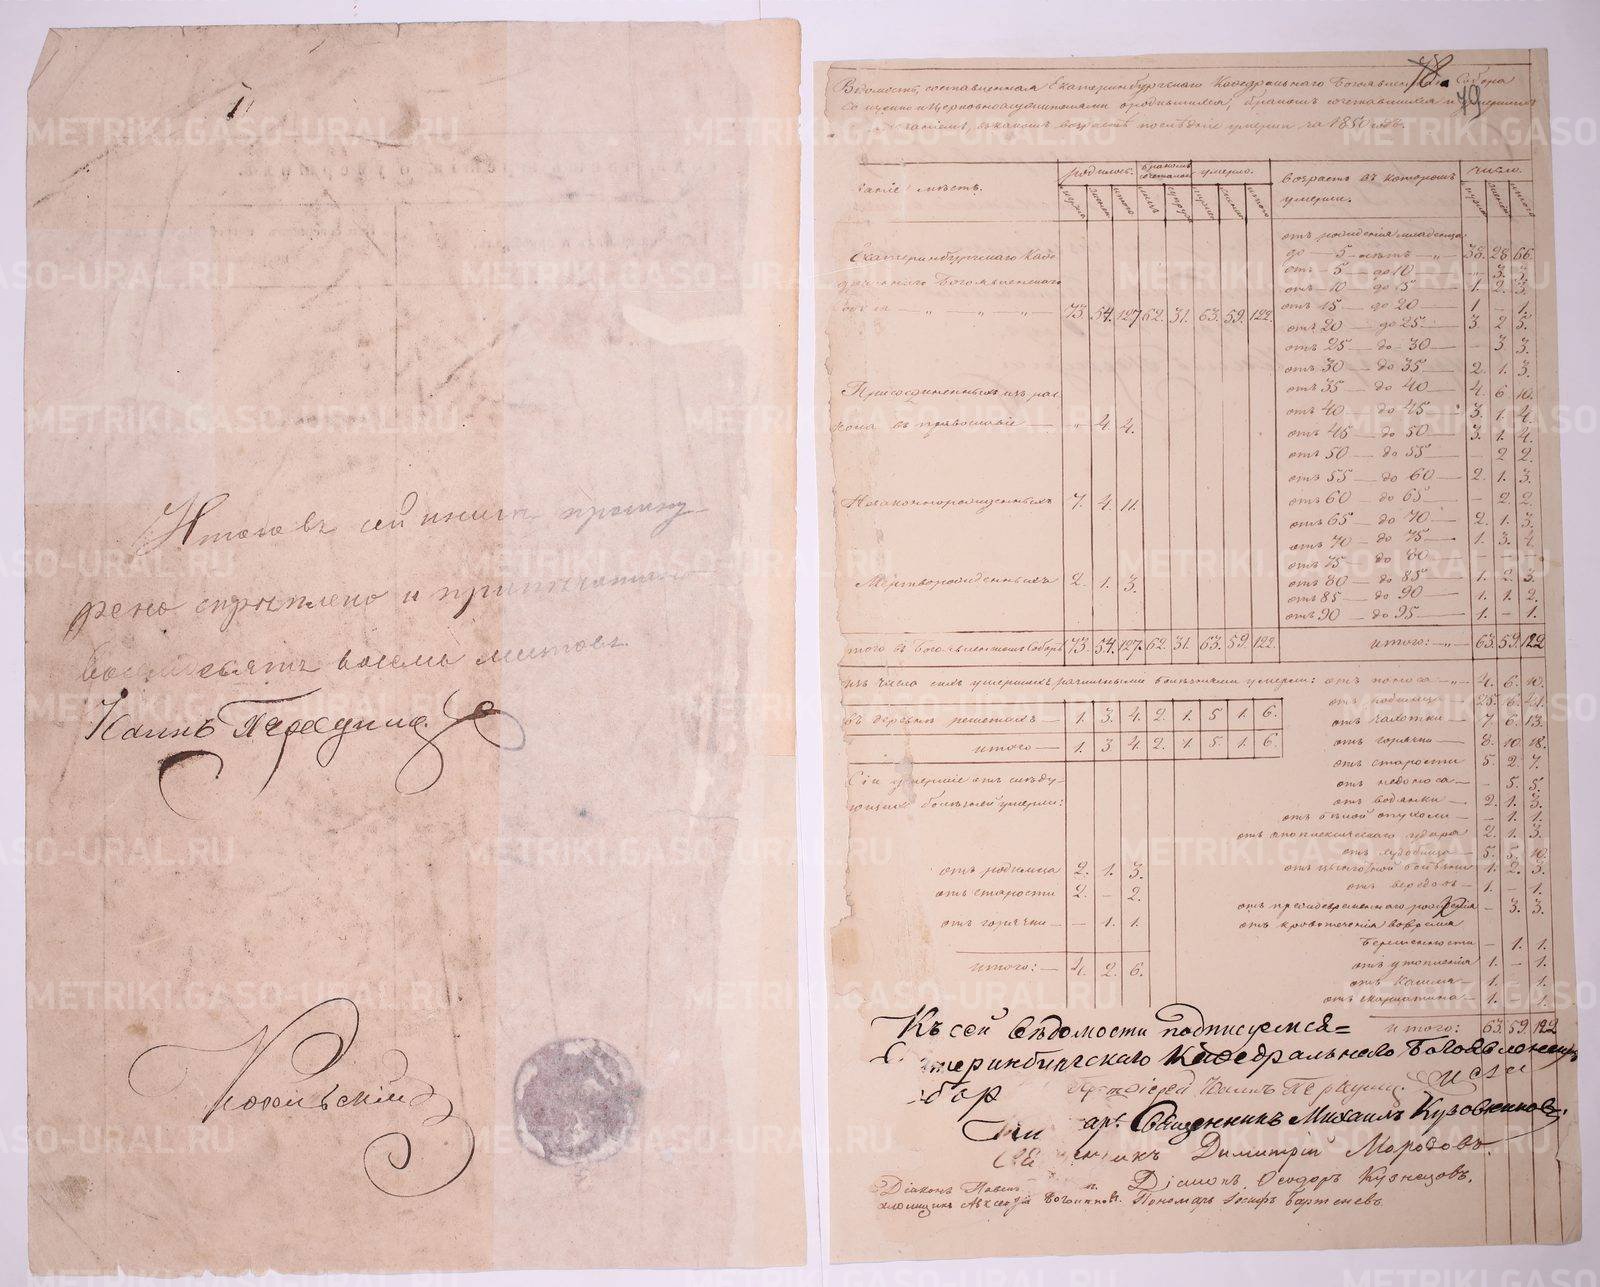 Итого въ сей книгѣ прошну-
ровано скрѣплено и припечатано
восемьдесятъ восемь листовъ.
78
79
Вѣдомость, составленная Екатеринбургскаго Каѳедральнаго Богоявленскаго Собора
за 1850 годъ.
родилось. бракомъ сочеталось умерло. возрастъ въ которомъ умерли. число.
отъ рожденія младенца
до 5 лѣтъ 38. 28 66.
Екатеринбургскаго Каѳе-
отъ 5 до 10 " 3. 3.
дральнаго Богоявленскаго
отъ 10 до 15 1. 2. 3.
отъ 15 до 20 1 — 1.
73. 54. 127 62. 31. 63. 59. 122.
отъ 20 до 25 3. 2 5.
отъ 25 до 30 — 3 3.
отъ 30 до 35 2. 1. 3.
Присоединенныхъ изъ рас-
отъ 35 до 40 4. 6 10.
кола въ православіе " 4. 4.
отъ 40 до 45 3. 1. 4.
отъ 45 до 50 3. 1. 4.
отъ 50 до 55 — 2 2.
отъ 55 до 60 2. 1. 3.
Незаконнорожденныхъ 7. 4. 11.
отъ 60 до 65 — 2 2.
отъ 65 до 70 2. 1. 3.
отъ 70 до 75 1. 3. 4.
отъ 75 до 80
Мертворожденныхъ 2. 1. 3.
отъ 80 до 85 1. 2. 3.
отъ 85 до 90 1. 1. 2.
отъ 90 до 95 1. — 1.
итого въ Богоявленскомъ Соборѣ 73. 54. 127. 62. 31. 63. 59. 122.
итого: 63. 59. 122
изъ числа сихъ умершихъ различными болѣзнями умерли: отъ поноса 4. 6. 10.
отъ родимца 25. 6. 41.
въ деревни решетахъ 1. 3. 4. 2. 1. 5 1. 6.
отъ чахотки 7. 6. 13.
итого 1. 3. 4. 2. 1. 5. 1. 6.
отъ горячки 8. 10. 18.
отъ старости 5. 2. 7.
Сіи умершіе отъ слѣду-
отъ недоноса — 5. 5.
ющихъ болѣзней умерли:
отъ водянки 2. 1. 3.
отъ бѣлой опухоли — 1. 1.
отъ апоплексическаго удара 2. 1. 3.
отъ худобища 5. 5. 10.
отъ родимца 2. 1. 3.
отъ цынготной болѣзни 1. 2. 3.
отъ старости 2. — 2.
отъ вередовъ 1. — 1.
отъ преждевременнаго рожденія — 3. 3.
отъ горячки — 1. 1.
отъ кровотеченія вовремя
беременности — 1. 1.
итого: 4. 2. 6.
отъ утопленія 1. — 1.
отъ кашля 1. 1.
отъ скарлатина 1. 1.
итого: 63. 59. 122
Къ сей вѣдомости подписуемся=
Екатеринбургскаго Каѳедральнаго Богоявленскаго
Священникъ Михаилъ Кузовниковъ.
Димитрій
Діаконъ Ѳеодоръ Кузнецовъ.
Діаконъ Павелъ
Алексѣй Пономарь Іосифъ
METRIKI.GASO-URAL.RU